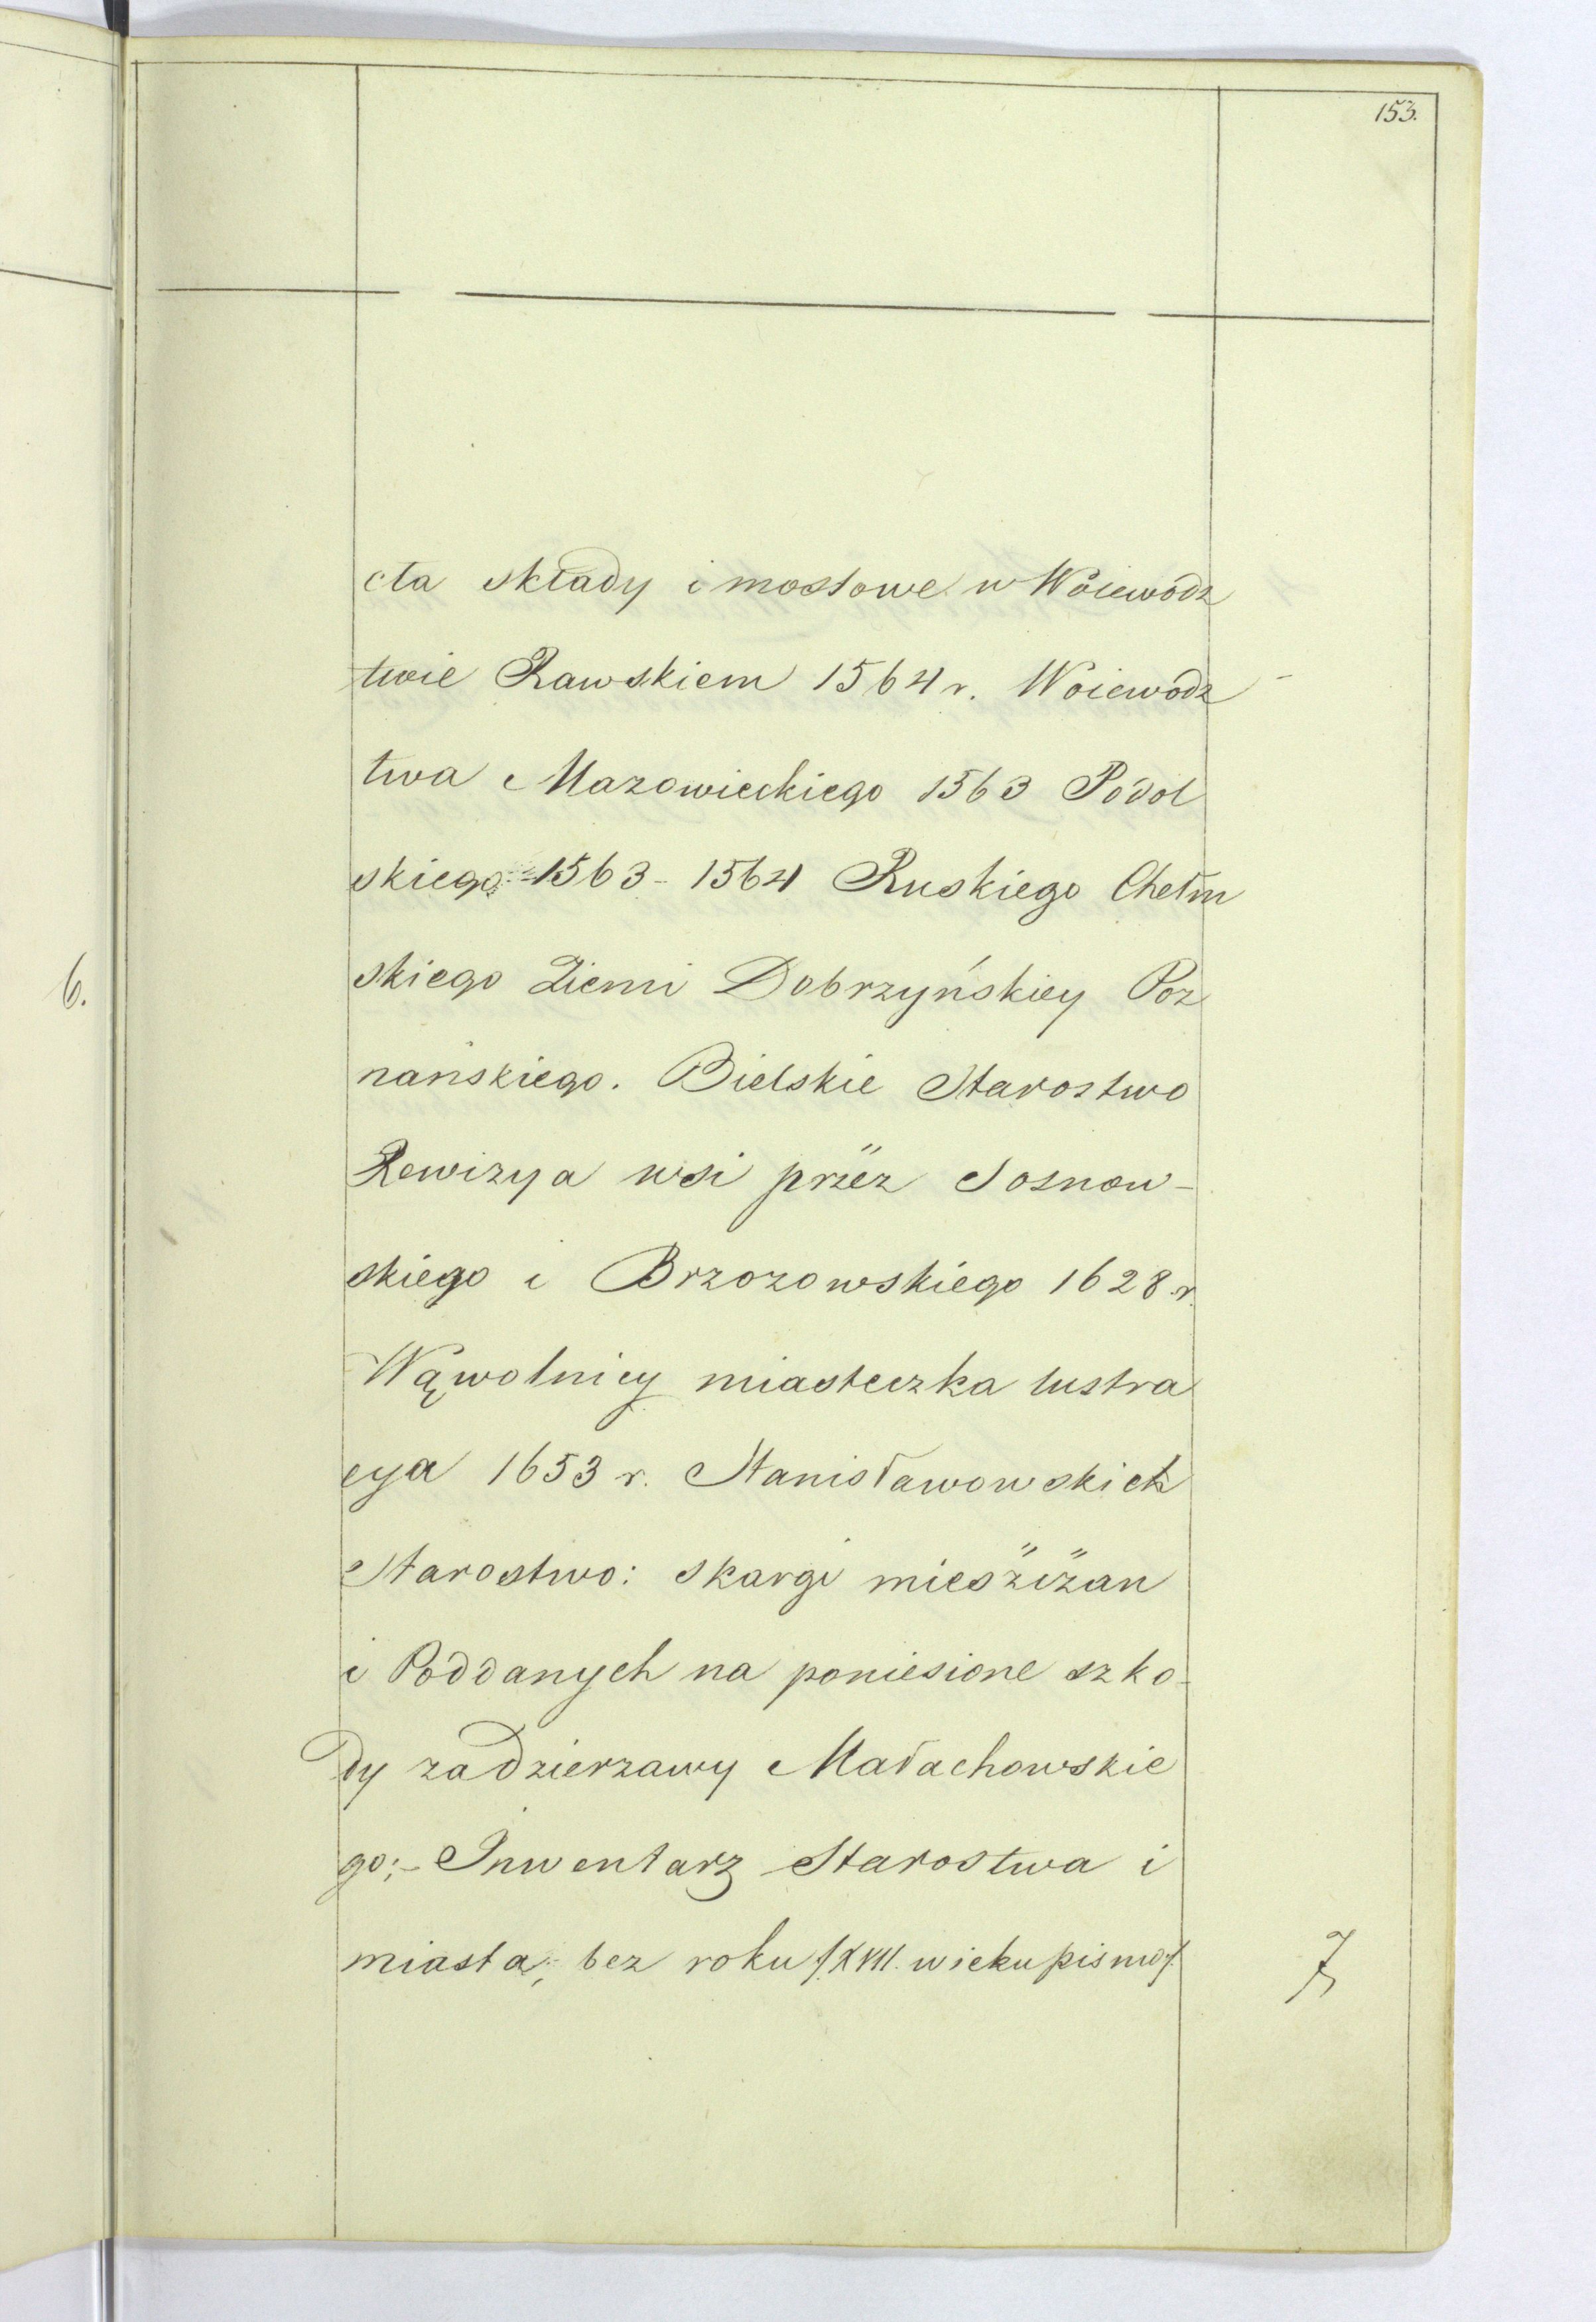 153.
cła składy i mostowe w Woiewodz
twie Rawskiem 1564 r. Woiewodz
twa Mazowieckiego 1563 Podol
skiego 1563 - 1564 Ruskiego Chełm
skiego Ziemi Dobrzyńskiey Poz
nańskiego. Bielskie Starostwo
Rewizya wsi przez Sosnow-
skiego i Brzozowskiego 1628 r.
Wąwolnicy miasteczka lustra
cya 1653 r. Stanisławowskich
Starostwo: skargi mieszczan
i Poddanych na poniesione szko-
dy za dzierzawy Małachowskie
go;- Inwentarz Starostwa i
miasta, bez roku /XVII. wieku pismo/.
7
6.